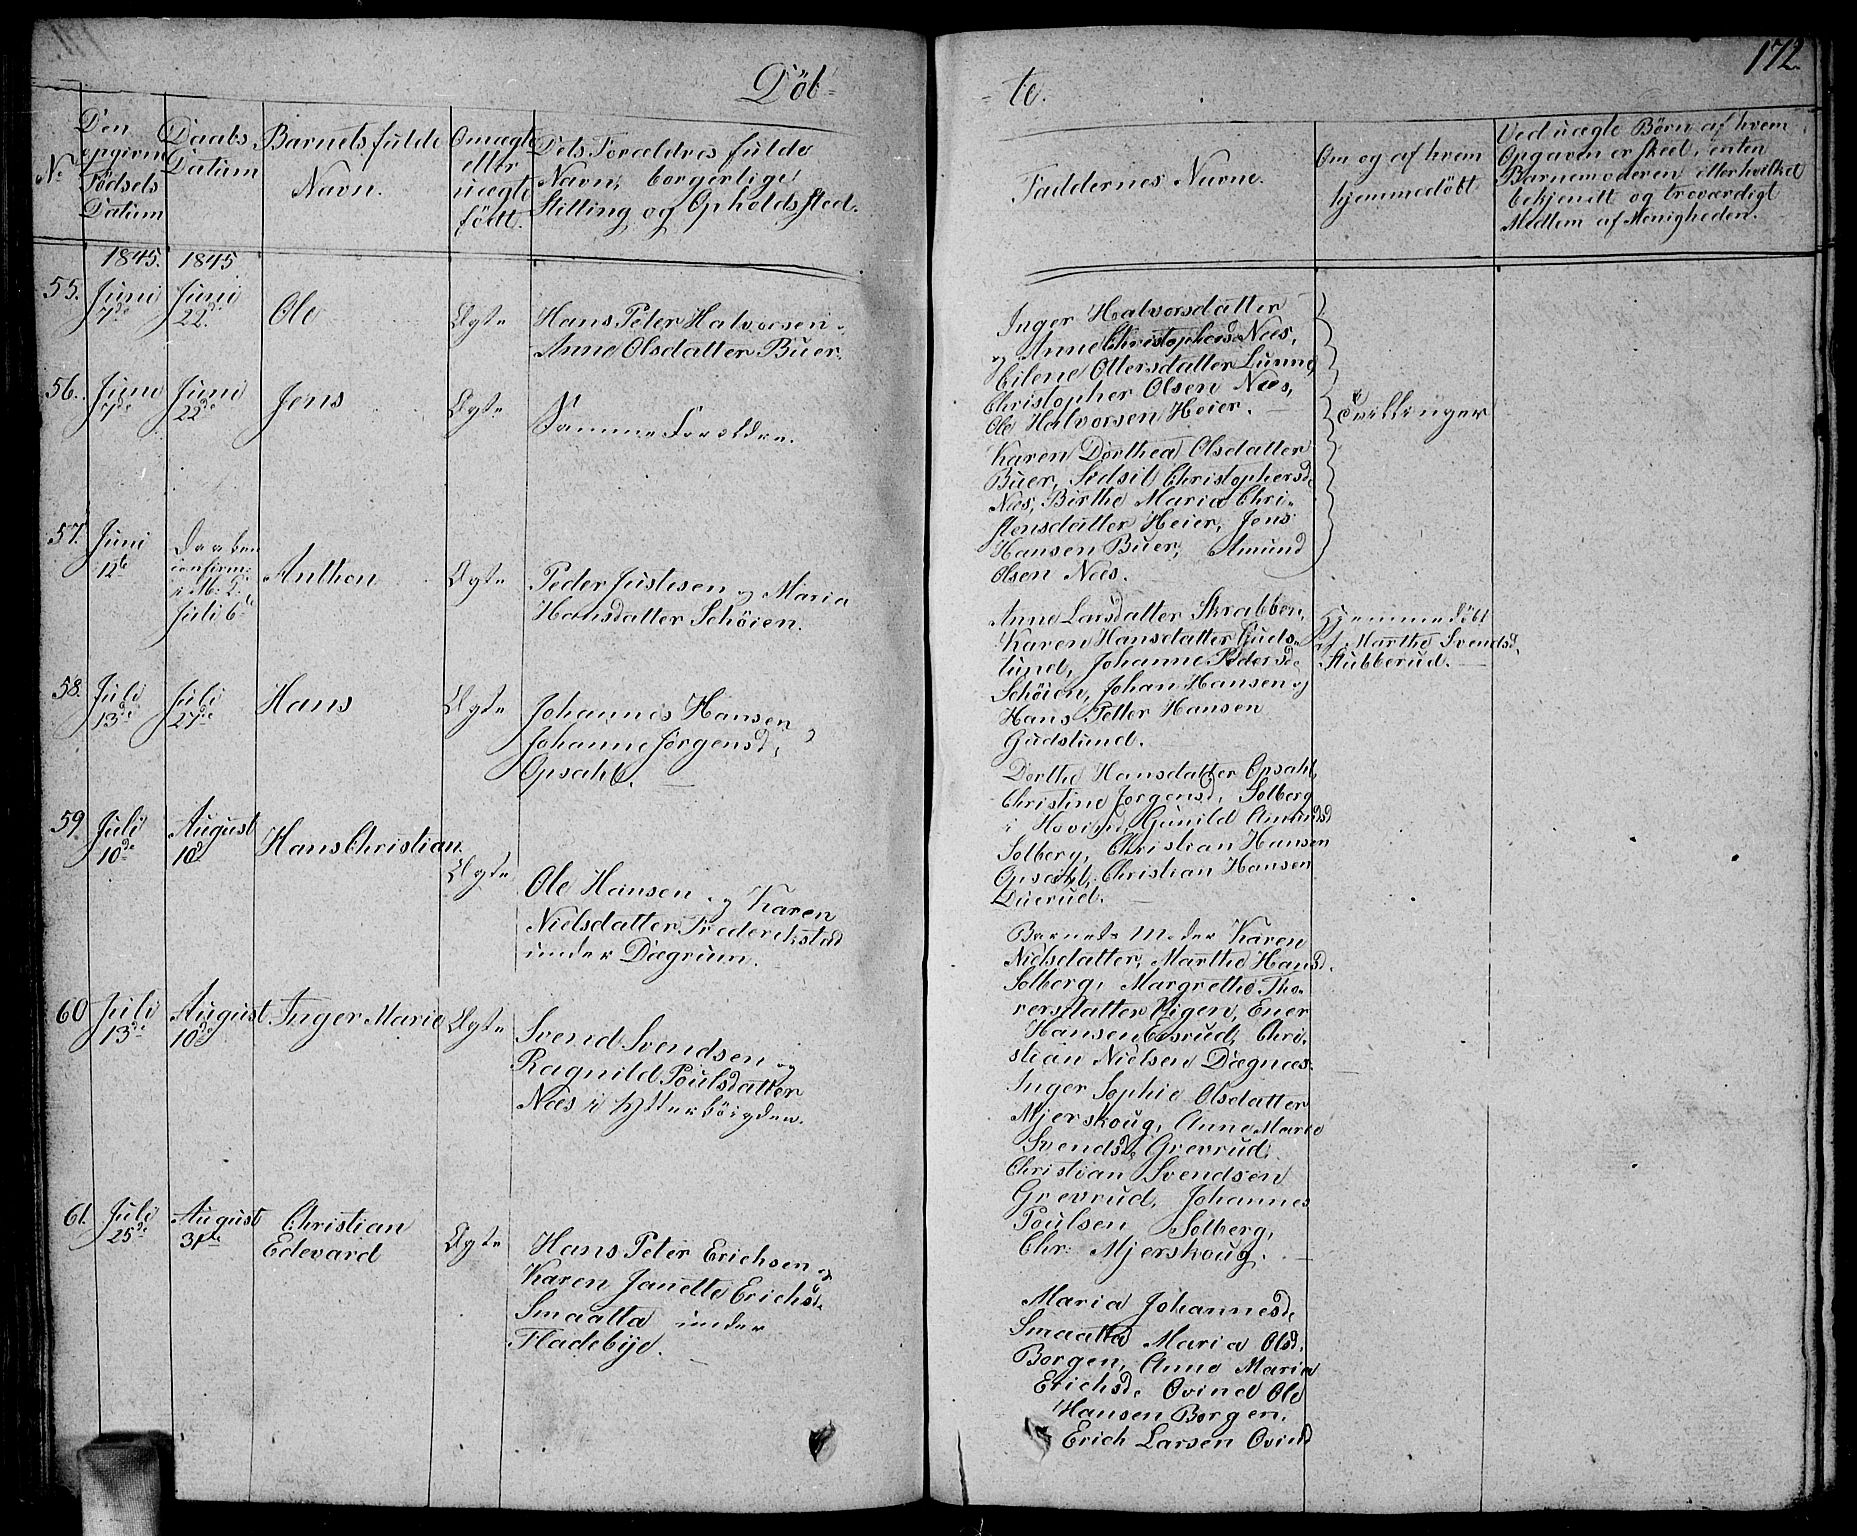 Döb-
-te.
172.
No
Den opgivne Födsels Datum
Daabs Datum
Barnets fulde Navn.
Om ægte eller uægte födt.
Dets Forældres fulde Navn, borgerlige Stilling og Opholdssted.
Faddernes Navne.
Om og af hvem hjemmedöbt
Ved uægte Börn af hvem
Opgaven er skeet, enten
Barnemoderen eller hvilket
bekjendt og troværdigt
Medlem af Menigheden.
1845. 1845
55. Juni 7de Juni 22de Ole Ægte
Hans Peter Halvorsen
Anne Olsdatter Buer.
Inger Halvorsdatter
og Anne Christophersd. Næs,
Eilene Ottersdatter Lunne,
Christopher Olsen Næs,
Ole Halvorsen Heier.
56. Juni 7de Juni 22de Jens Ægte
Samme Forældre.
Tvillinger
Karen Dorthea Olsdatter
Buer, Sidsil Christophersd.
Næs, Birthe Maria Chri-
stensdatter Heier, Jens
Hansen Buer, Amund
Olsen Næs.
57. Juni 12te Daaben confirm: i M: K: Juli 6te Anthon Ægte
Peder Justesen og Maria
Hansdatter Schöien.
Anne Larsdatter Skrabben,
Karen Hansdatter Guds-
lund, Johanne Pedersd.
Schöien, Johan Hansen og
Hans Petter Hansen
Gudslund.
Hjemmedöbt
af Marthe Svendsd.
Stubberud.
58. Juli 13de Juli 27de Hans Ægte
Johannes Hansen
Johanne Jörgensd.
Opsahl.
Dorthe Hansdatter Opsahl,
Christine Jörgensd. Solberg
i Hovind, Gunild Amundsd
Solberg, Christian Hansen
Opsahl, Christian Hansen
Duerud.
59. Juli 10de August 10de Hans Christian Ægte
Ole Hansen og Karen
Nielsdatter Frederikstad
under Dægrum.
Barnets Moder Karen
Nielsdatter, Marthe Hansd.
Solberg, Margrethe Tho-
rersdatter Vigen, Ener
Hansen Eesrud, Chri-
stian Nielsen Dægnæs.
60 Juli 13de August 10de Inger Marie Ægte
Svend Svendsen og
Ragnild Poulsdatter
Næs i Ytterböigden.
Inger Sophie Olsdatter
Mjerskoug, Anne Marie
Svendsd. Grevrud,
Christian Svendsen
Grevrud, Johannes
Poulsen Solberg,
Chr: Mjerskoug.
61. Juli 25de August 31te Christian Edevard Ægte
Hans Peter Erichsen og
Karen Janette Erichsd.
Smaatta under
Fladebÿe.
Maria Johannesd.
Smaatta Maria Olsd.
Borgen, Anne Maria
Erichsd. Ovind Ole
Hansen Borgen,
Erich Larsen Ovind